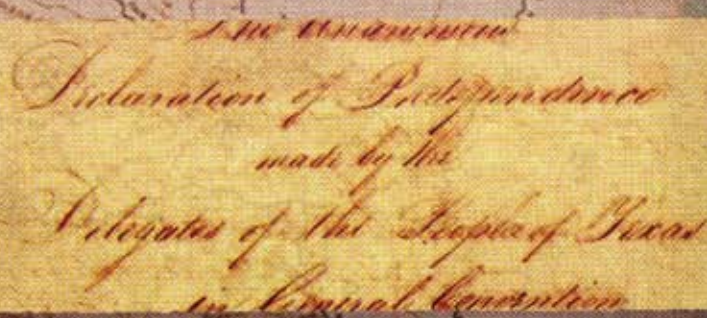 The Unanimous
Declaration of Independence
made by the
Delegates of the People of Texas
in General Convention